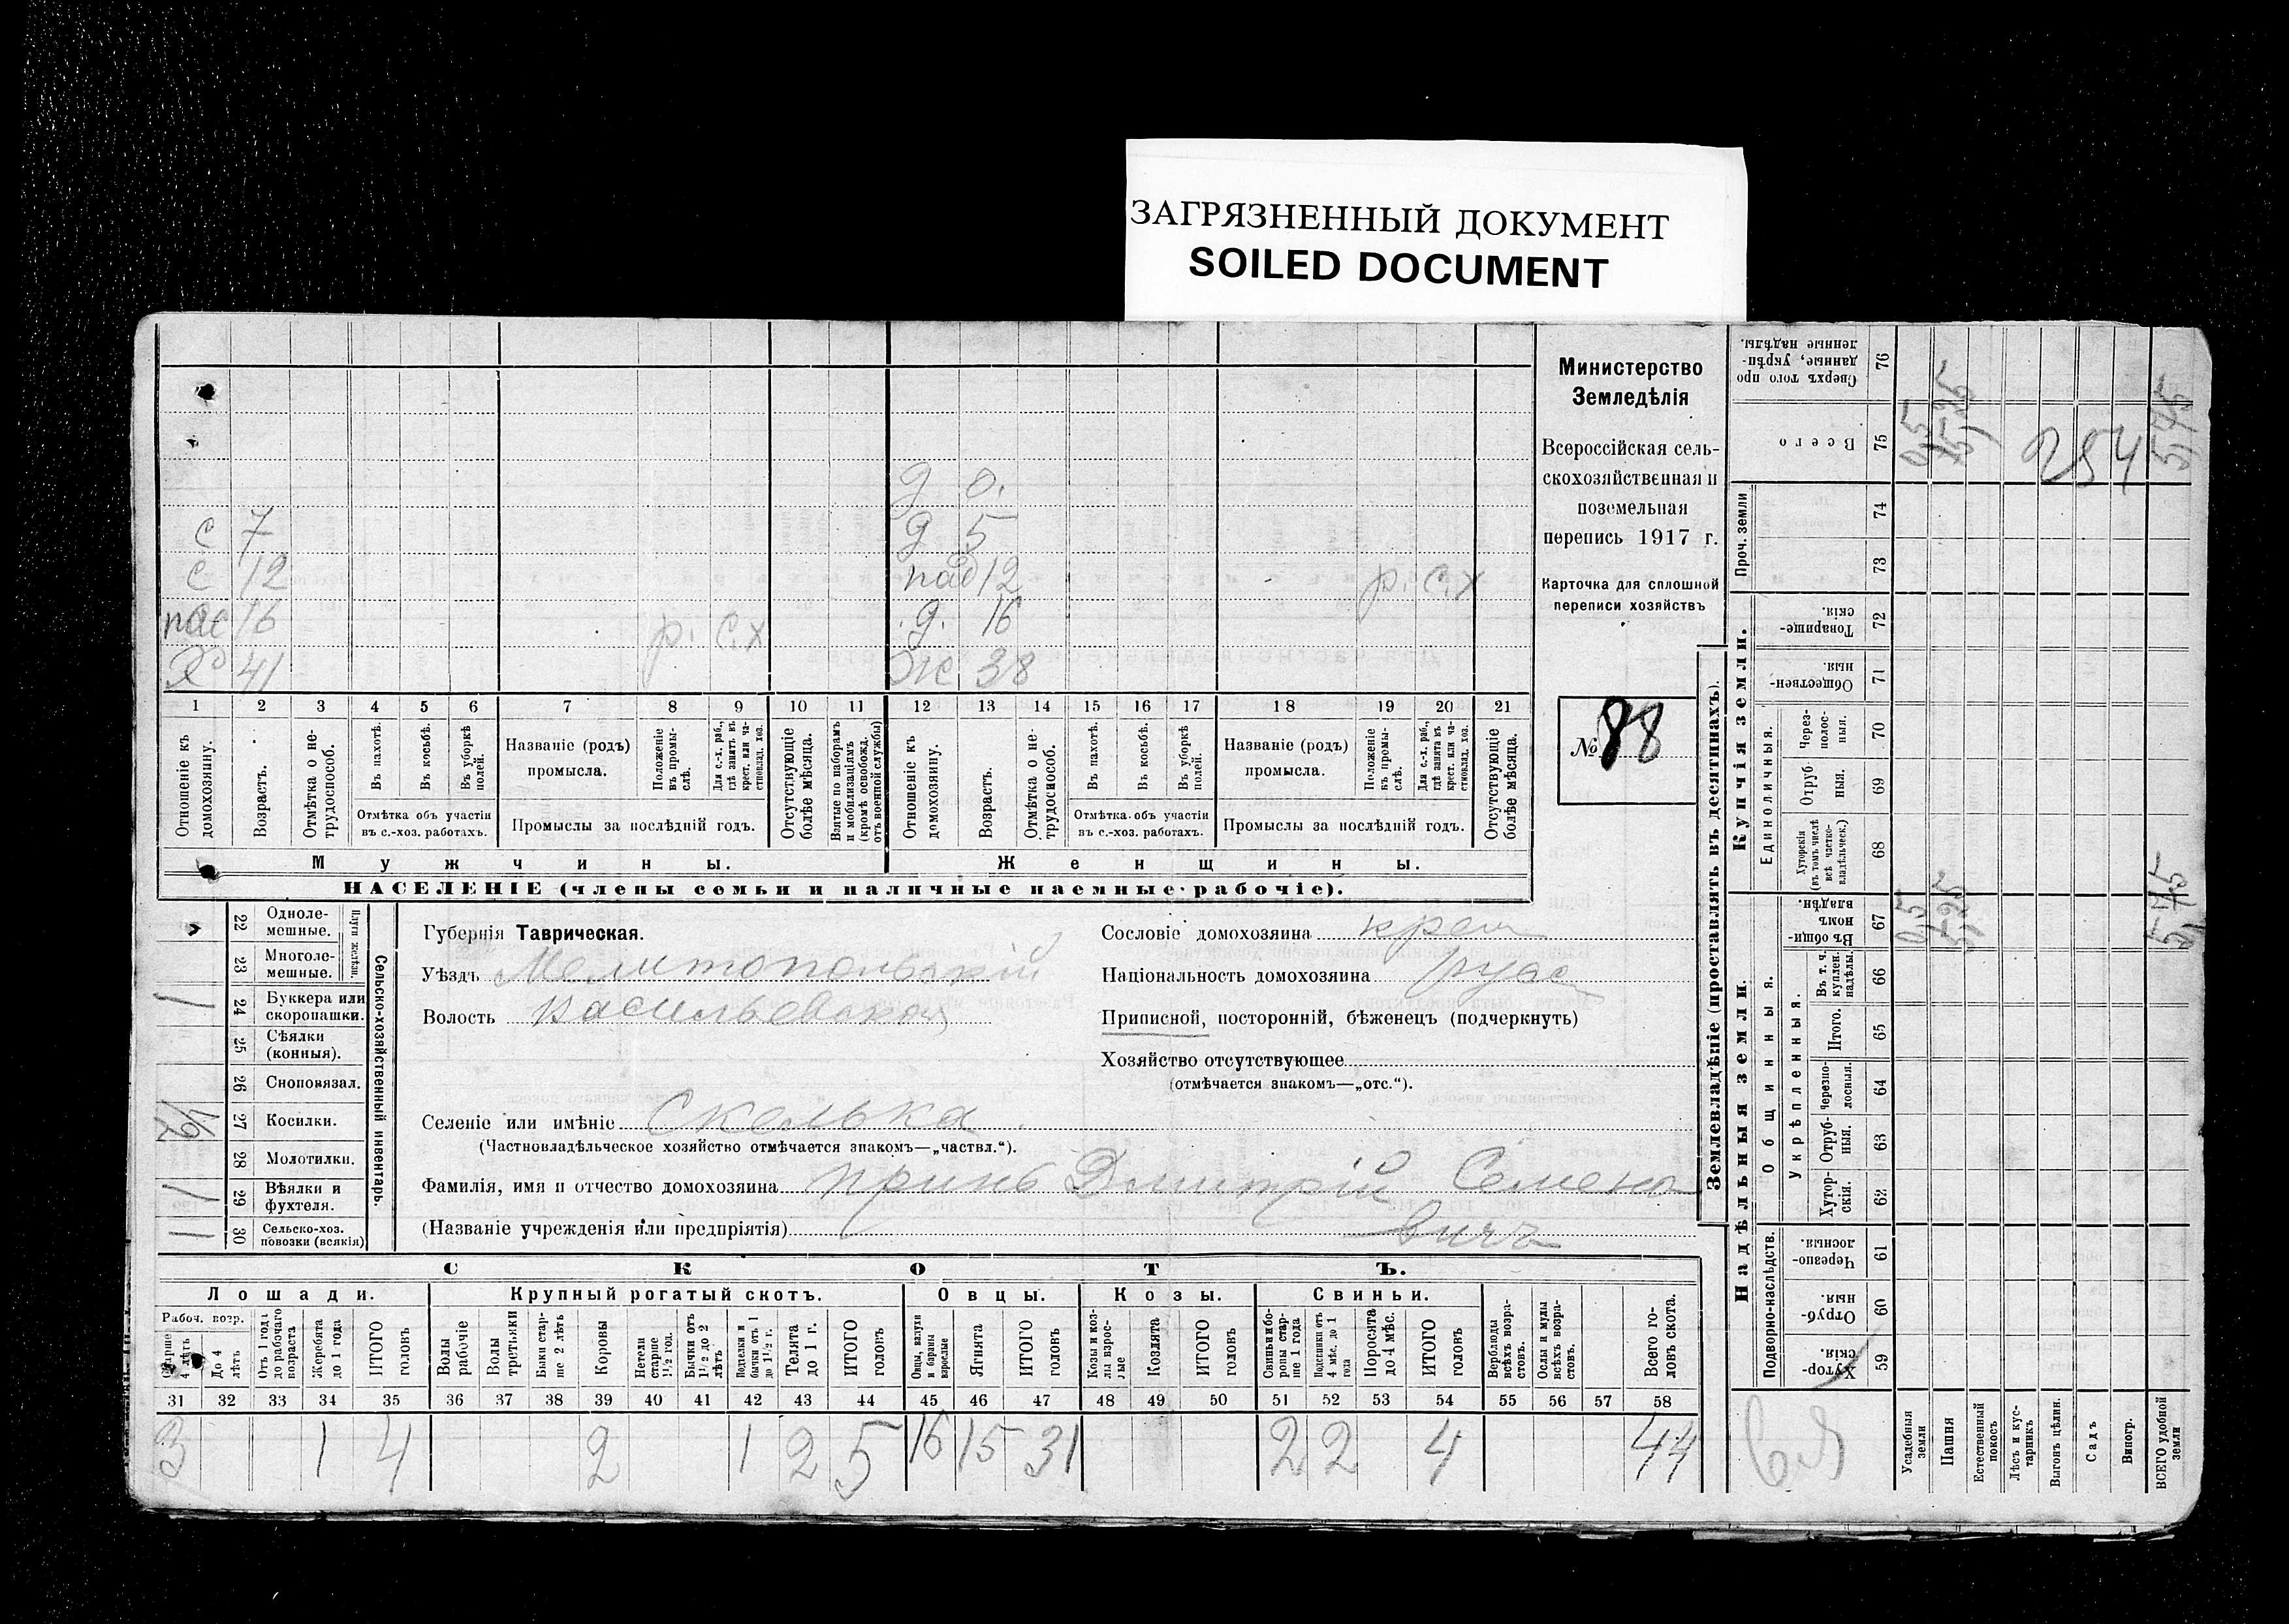 ЗАГРЯЗНЕННЫЙ ДОКУМЕНТ
SOILED DOCUMENT
Министерство
Земледѣлія
Всероссійская сель-
скохозяйственная и
поземельная
перепись 1917 г.
Карточка для сплошной
переписи хозяйствъ
№ 88
д 0.
с 7 д 5
с 12 пад 12 р. с.х
пас 16 р. с.х д. 16
Хо 41 Ж 38
1 2 3 4 5 6 7 8 9 10 11 12 13 14 15 16 17 18 19 20 21
Отношеніе къ домохозяину.
Возрастъ.
Отмѣтка о не-трудоспособ.
Въ пахотѣ.
Въ косьбѣ.
Въ уборкѣ полей.
Отмѣтка объ участіи
въ с.-хоз. работахъ.
Названіе (родъ)
промысла.
Положеніе въ промы-слѣ.
Для с.-х. раб., гдѣ занятъ въ крест. или ча-стновлад. хоз.
Промыслы за послѣдній годъ.
Отсутствующіе болѣе мѣсяца.
Взятые по наборамъ и мобилизаціямъ (кромѣ освобожд. отъ военной службы)
Отношеніе къ домохозяину.
Возрастъ.
Отмѣтка о не-трудоспособ.
Въ пахотѣ.
Въ косьбѣ.
Въ уборкѣ полей.
Отмѣтка объ участіи
въ с.-хоз. работахъ.
Названіе (родъ)
промысла.
Положеніе въ промы-слѣ.
Для с.-х. раб., гдѣ занята въ крест. или ча-стновлад. хоз.
Промыслы за послѣдній годъ.
Отсутствующіе болѣе мѣсяца.
Мужчины. Женщины.
НАСЕЛЕНІЕ (члены семьи и наличные наемные рабочіе).
Сельско-хозяйственный инвентарь.
Плуги желѣзн.
22 Одноле-мешные.
23 Многоле-мешные.
1 24 Буккера или скоропашки.
25 Сѣялки (конныя).
26 Сноповязал.
27 Косилки.
28 Молотилки.
1 29 Вѣялки и фухтеля.
30 Сельско-хоз. повозки (всякія)
Губернія Таврическая.
Уѣздъ Мелитопольскій
Волость Васильевская
Сословіе домохозяина крест
Національность домохозяина русс
Приписной, посторонній, бѣженецъ (подчеркнуть)
Хозяйство отсутствующее
(отмѣчается знакомъ—„отс.“).
Селеніе или имѣніе Скелька
(Частновладѣльческое хозяйство отмѣчается знакомъ—„частвл.“).
Фамилія, имя и отчество домохозяина Принь Дмитрій Семено
(Названіе учрежденія или предпріятія) вичъ
СКОТЪ.
Лошади. Крупный рогатый скотъ. Овцы. Козы. Свиньи.
Рабоч. возр.
Старше 4 лѣтъ
До 4 лѣтъ
Отъ 1 года до рабочаго возраста
Жеребята до 1 года
ИТОГО головъ
Волы рабочіе
Волы третьяки
Быки стар-ше 2 лѣтъ
Коровы
Нетели старше 1½ год.
Бычки отъ 1½ до 2 лѣтъ
Подтелки и бычки отъ 1 до 1½ г.
Телята до 1 г.
ИТОГО головъ
Овцы, валухи и бараны взрослые
Ягнята
ИТОГО головъ
Козы и коз-лы взрос-лые
Козлята
ИТОГО головъ
Свиньи и бо-ровы стар-ше 1 года
Подсвинки отъ 4 мѣс. до 1 года
Поросята до 4 мѣс.
ИТОГО головъ
Верблюды всѣхъ возра-стовъ.
Ослы и мулы всѣхъ возра-стовъ.
Всего го-ловъ скота.
31 32 33 34 35 36 37 38 39 40 41 42 43 44 45 46 47 48 49 50 51 52 53 54 55 56 57 58
3 1 4 2 1 2 5 16 15 31 2 2 4 44
Землевладѣніе (проставлять въ десятинахъ).
Купчія земли.
Надѣльныя земли.
Сверхъ того про-данные, укрѣп-ленные надѣлы. 76
Всего 75 0,5 5,25 254 5,75
Проч. земли
74
73
Товарище-скія. 72
Обществен-ныя. 71
Единоличныя.
Через-полос-ныя. 70
Отруб-ныя. 69
Хуторскія (въ томъ числѣ всѣ частно-владѣльческ.) 68
Общинныя.
Въ общи-номъ владѣн. 67 0,5 5,25 5,75
Укрѣпленныя.
Въ т. ч. куплен. надѣлы. 66
Итого. 65
Черезпо-лосныя. 64
Отруб-ныя. 63
Хутор-скія. 62
Подворно-наслѣдств.
Черезпо-лосныя 61
Отруб-ныя. 60
Хутор-скія. 59
Усадебныя земли
Пашня
Естественный покосъ
Лѣсъ и кус-тарникъ
Выгонъ цѣлин.
Садъ
Виногр.
ВСЕГО удобной земли